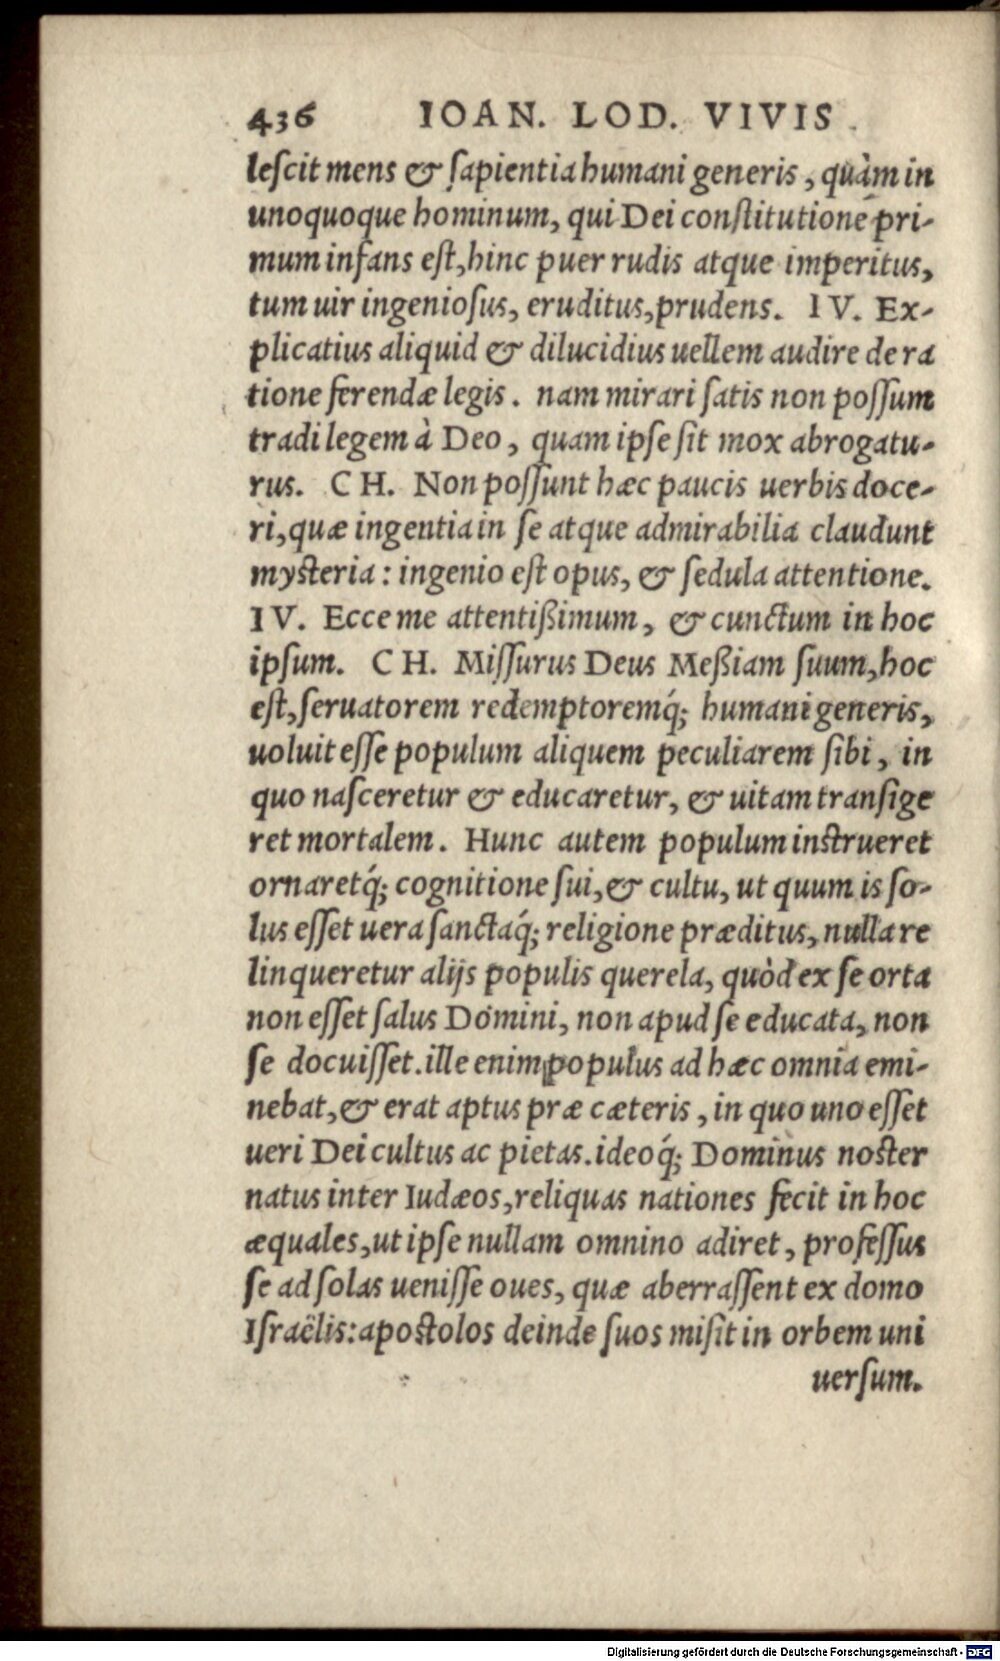 436 IOAN. LOD. VIVIS
leſcit mens & ſapientia humani generis, quàm in
unoquoque hominum, qui Dei conſtitutione pri-
mum infans eſt, hinc puer rudis atque imperitus,
tum uir ingenioſus, eruditus, prudens. IV. Ex-
plicatius aliquid & dilucidius uellem audire de ra
tione ferendæ legis. nam mirari ſatis non poſſum
tradi legem à Deo, quam ipſe ſit mox abrogatu-
rus. CH. Non poſſunt hæc paucis uerbis doce-
ri, quæ ingentia in ſe atque admirabilia claudunt
myſteria: ingenio eſt opus, & ſedula attentione.
IV. Ecce me attentißimum, & cunctum in hoc
ipſum. CH. Miſſurus Deus Meßiam ſuum, hoc
eſt, ſeruatorem redemptoremq́; humani generis,
uoluit eſſe populum aliquem peculiarem ſibi, in
quo naſceretur & educaretur, & uitam tranſige
ret mortalem. Hunc autem populum inſtrueret
ornaretq́; cognitione ſui, & cultu, ut quum is ſo-
lus eſſet uera ſanctaq́; religione præditus, nulla re
linqueretur alijs populis querela, quòd ex ſe orta
non eſſet ſalus Domini, non apud ſe educata, non
ſe docuiſſet. ille enim populus ad hæc omnia emi-
nebat, & erat aptus præ cæteris, in quo uno eſſet
ueri Dei cultus ac pietas. ideoq́; Dominus noſter
natus inter Iudæos, reliquas nationes fecit in hoc
æquales, ut ipſe nullam omnino adiret, profeſſus
ſe ad ſolas ueniſſe oues, quæ aberraſſent ex domo
Iſraëlis: apoſtolos deinde ſuos miſit in orbem uni
uerſum.
Digitalisierung gefördert durch die Deutsche Forschungsgemeinschaft - DFG